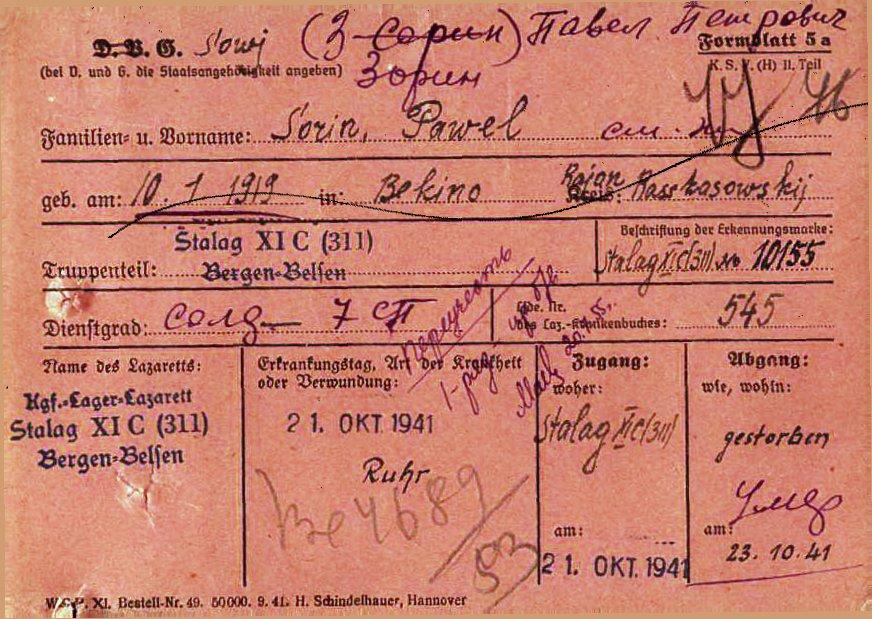 D. V. G. Sowj (З Сорин) Павел Петрович
Formblatt 5a
(bei D. und G. die Staatsangehörigkeit angeben) Зорин
K. S. V. (H) II. Teil
Familien- u. Vorname: Sorin, Pawel см. 46
geb. am: 10. 1 1919 in: Bekino Rajon Kreis: Rasskasowskij
Stalag XI C (311)
Bergen-Belsen
Truppenteil:
Beschriftung der Erkennungsmarke:
Stalag XI C (311) № 10155
Dienstgrad: солд— 7 сп
Lfde. Nr.
des Laz.-Krankenbuches: 545
Name des Lazaretts:
Kgf.-Lager-Lazarett
Stalag XI C (311)
Bergen-Belsen
Erkrankungstag, Art der Krankheit
oder Verwundung:
21. OKT 1941
Ruhr
4689
53
Zugang:
woher:
Stalag XI C (311)
am:
21. OKT. 1941
Abgang:
wie, wohin:
gestorben
Умер
am:
23. 10. 41
W.G.P. XI. Bestell-Nr. 49. 50000. 9. 41. H. Schindelhauer, Hannover